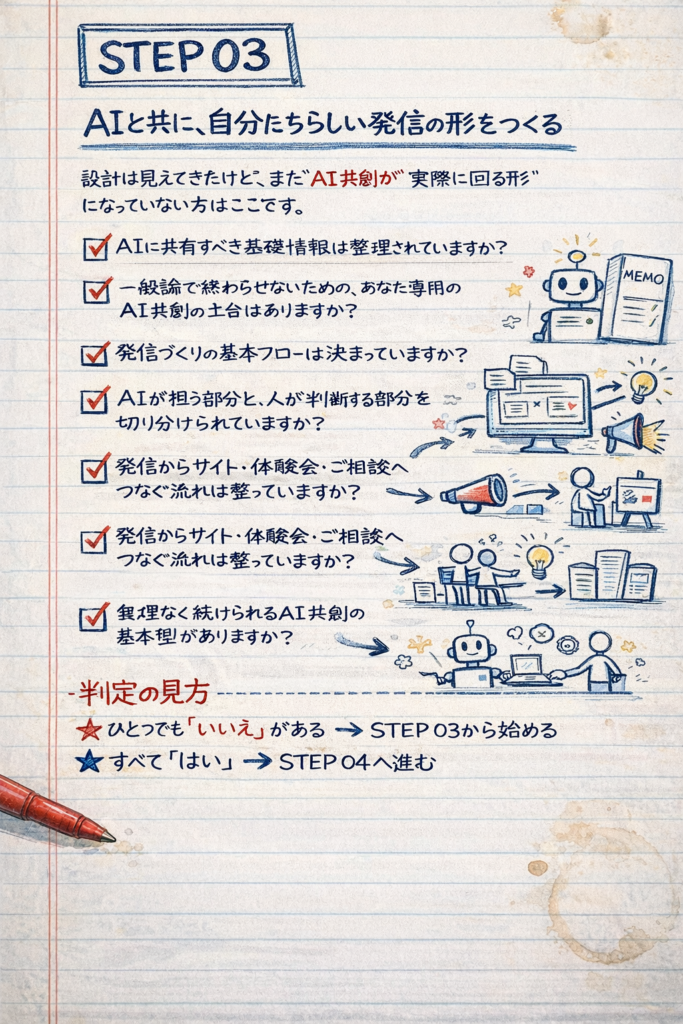 STEP 03
AIと共に、自分たちらしい発信の形をつくる
設計は見えてきたけど、まだ"AI共創が"実際に回る形"
になっていない方はここです。
AIに共有すべき基礎情報は整理されていますか?
一般論で終わらせないための、あなた専用の
AI共創の土台はありますか?
MEMO
発信づくりの基本フローは決まっていますか?
AIが担う部分と、人が判断する部分を
切り分けられていますか?
発信からサイト・体験会・ご相談へ
つなぐ流れは整っていますか?
発信からサイト・体験会・ご相談へ
つなぐ流れは整っていますか?
理なく続けられるAI共創の
基本型がありますか?
判定の見方
ひとつでも「いいえ」がある → STEP 03から始める
すべて「はい」 → STEP 04へ進む